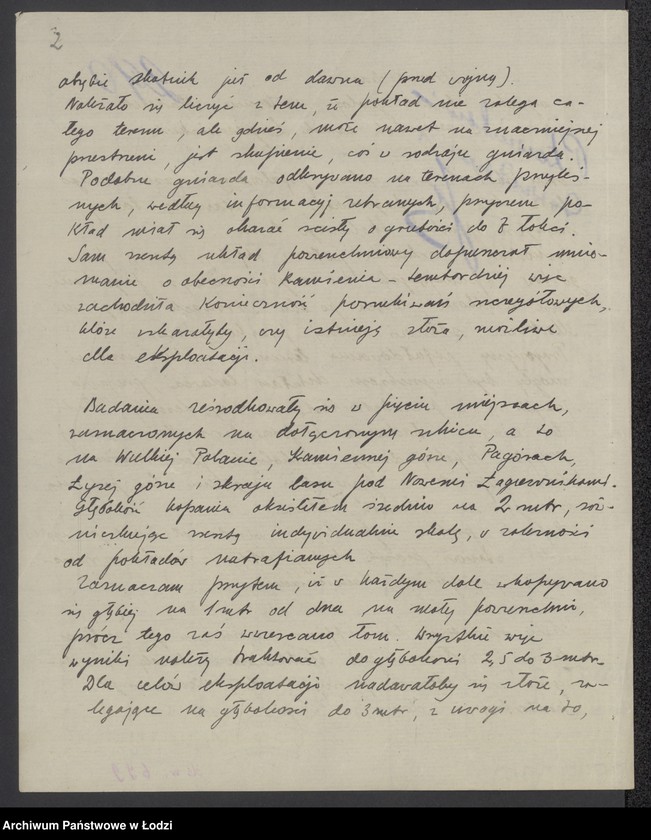 2
obrębie skałnik już od dawna (przed wojną).
Należało się liczyć z tem, iż pokład nie zalega ca-
łego terenu, ale gdzieś, może nawet na znaczniejszej
przestrzeni, jest skupienie, coś w rodzaju gniazda.
Podobne gniazda odkrywano na terenach przyleg-
nych, według informacyj zebranych, przyczem po-
kład miał się okazać ścisły o grubości do 7 łokci.
Sam zresztą układ powierzchniowy dopuszczał mnie-
manie o obecności kamienia - tembardziej więc
zachodziła konieczność poszukiwań szczegółowych,
które wskazałyby, czy istnieją złoża, możliwe
dla eksploatacji.
Badania ześrodkowały się w pięciu miejscach,
zaznaczonych na dołączonym szkicu, a to
na Wielkiej Polanie, Kamiennej górze, Pagórach,
Łysej górze i skraju lasu pod Nowemi Łagiewnikami.
Głębokość kopania określiłem średnio na 2 mtr, róż-
niczkując zresztą indywidualnie skalę, w zależności
od pokładów natrafianych
Zaznaczam przytem, iż w każdym dole wkopywano
się głębiej na 1 mtr od dna na małej powierzchni,
prócz tego zaś wwiercano łom. Wszystkie więc
wyniki należy traktować do głębokości 2,5 do 3 mtr.
Dla celów eksploatacji nadawałoby się złoże, za-
legające na głębokości do 3 mtr, z uwagi na to,
Archiwum Państwowe w Łodzi